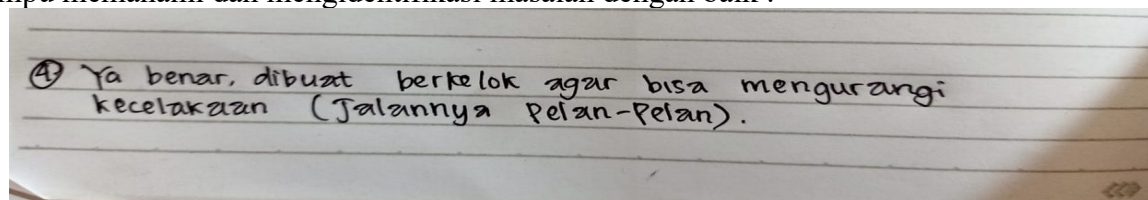 mampu memahami dan mengidentifikasi masalah dengan baik .
④ Ya benar, dibuat berkelok agar bisa mengurangi
kecelakaan (Jalannya Pelan-Pelan).